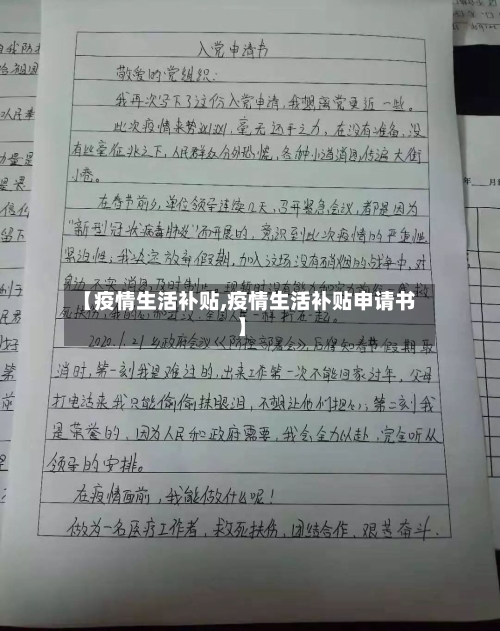 入党申请书
敬爱的党组织:
我再次写下了这份入党申请,我想离党更近一些。
此次疫情来势汹汹,毫无还手之力,在没有准备,没
有些毫征兆之下,人民群众分外恐慌,各种小道消息传遍大街
小巷。
在春节前夕,单位领导连续几天,召开紧急会议,都是因为
"新型冠状病毒肺炎"而开展的,意识到此次疫情的严重性
紧迫性,我决定放弃假期,加入这场没有硝烟的战争中,对
【疫情生活补贴,疫情生活补贴申请书
】
2020.1.21乡政府会议《防控部署会》后得知春节假期取
消时,第一刻我是难过的,出来工作第一次不能回家过年,父母
打电话来我只能偷偷抹眼泪,不想让他们担心;第二刻我
是荣誉的,因为人民和政府需要,我会全力以赴,完全听从
领导的安排。
在疫情面前,我能做什么呢!
做为一名医疗工作者,救死扶伤,团结合作,艰苦奋斗.